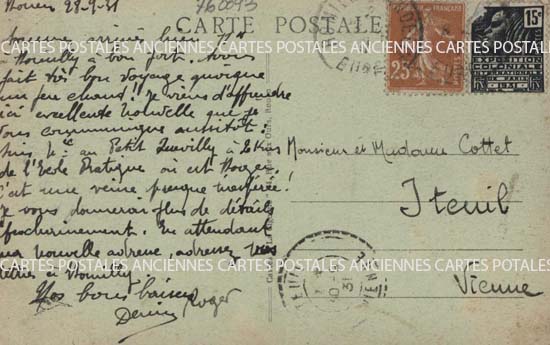 Rouen 28-9-31
760093
CARTE POSTALE
sommes arrivés
à Romilly à bon port. Avons
fait très bon voyage quoique
un peu chaud! Je viens d'apprendre
excellente nouvelle que je
vous communique aussitôt:
au Petit Quevilly à 2 Kms
de l'Ecole Pratique où est Roger
C'est une veine presque inespérée!
Je vous donnerai plus de détails
prochainement. En attendant
ma nouvelle adresse, adressez vos
lettres à Romilly
Nos bons baisers
Roger
Monsieur et Madame Cottet
Iteuil
Vienne
RÉPUBLIQUE FRANÇAISE
25c
15c
EXPOSITION
COLONIALE
INTERNATIONALE
PARIS
1931
VIENNE
31
CARTES POSTALES ANCIENNES CARTES POSTALES ANCIENNES CARTES POSTALES
CARTES POSTALES ANCIENNES CARTES POSTALES ANCIENNES CARTES POSTALES